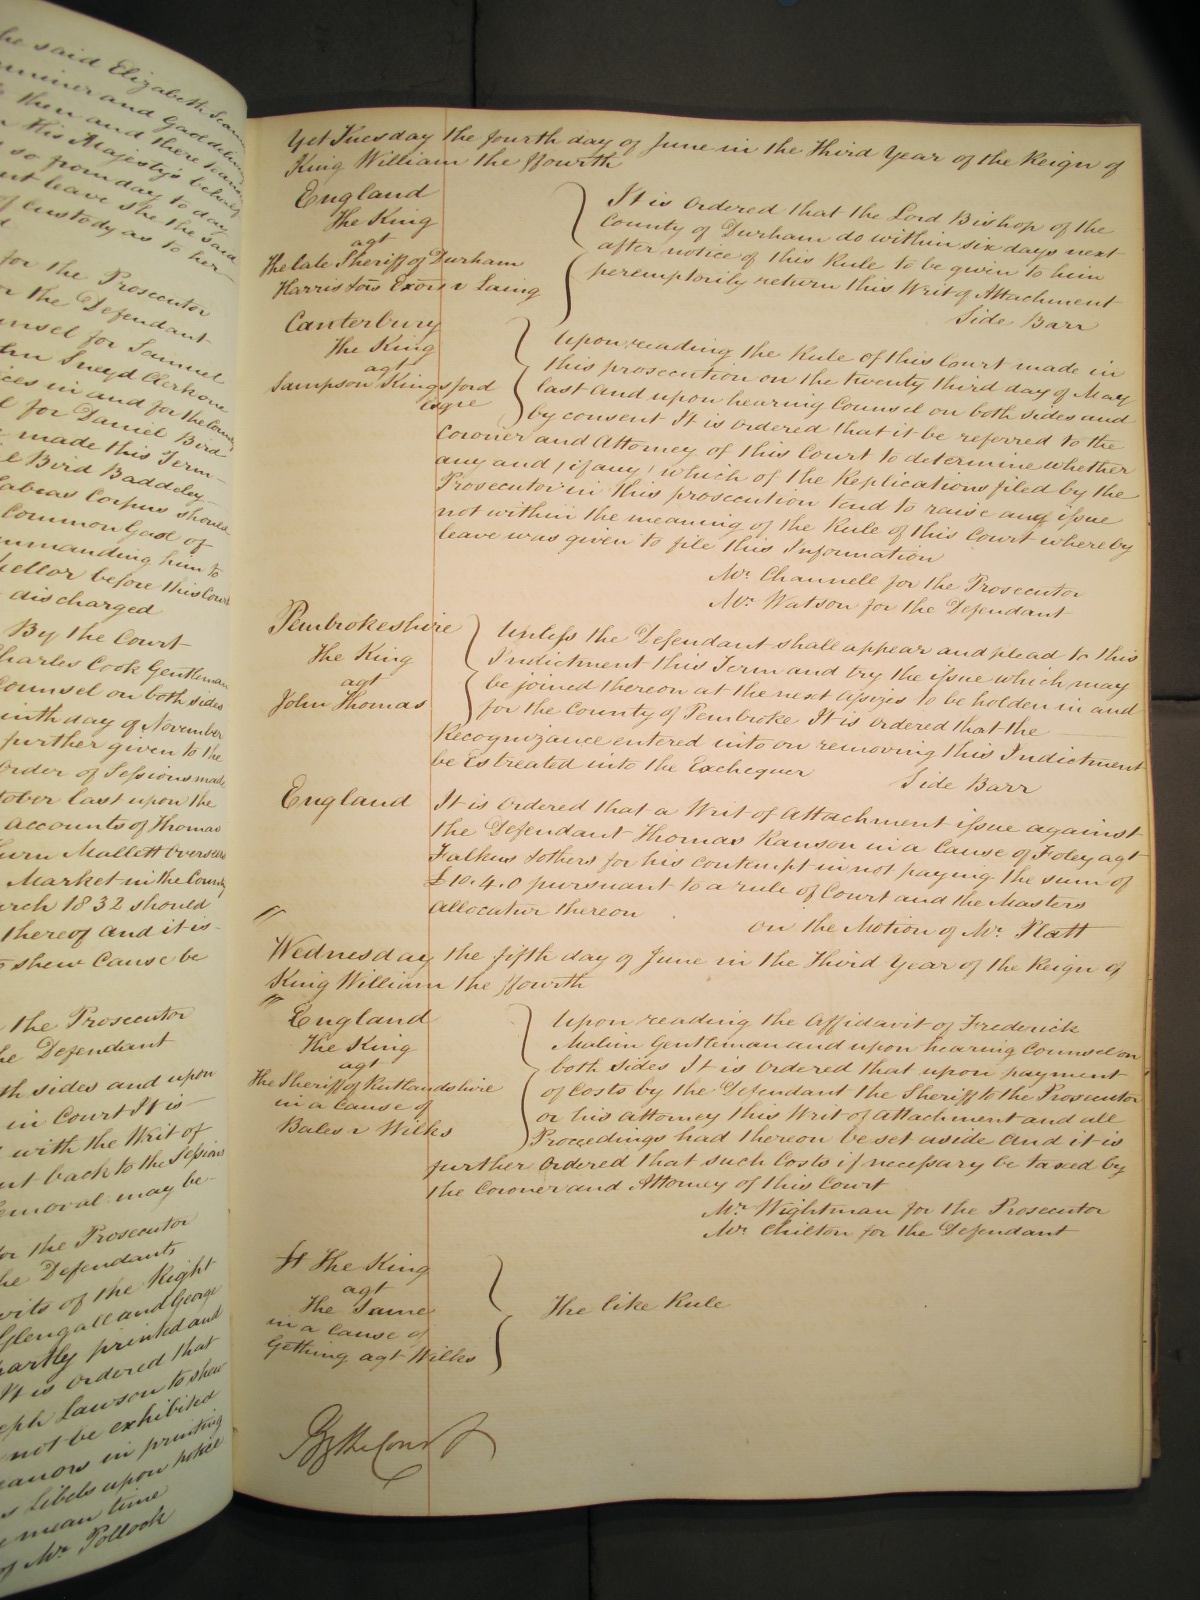 he said Elizabeth
then and there
His Majesty's behalf
so from day to day
leave she the said
custody as to her
for the Prosecutor
the Defendant
Counsel for Samuel
Sneyd Clerk one
in and for the County
for Daniel Bird
made this Term
Bird Baddeley
Habeas Corpus should
Common Gaol of
commanding him to
before this Court
discharged
By the Court
Charles Cook Gentleman
Counsel on both sides
ninth day of November
further given to the
Order of Sessions made
October last upon the
accounts of Thomas
Mallett Overseers
Market in the County
March 1832 should
thereof and it is
to shew Cause be
the Prosecutor
the Defendant
both sides and upon
in Court It is
with the Writ of
sent back to the Sessions
removal may be
for the Prosecutor
the Defendants
of the Right
Glengall and George
partly printed and
It is ordered that
Joseph Lawson to shew
not be exhibited
in printing
libels upon notice
mean time
of Mr. Pollock
Yet Tuesday the fourth day of June in the Third Year of the Reign of
King William the ffourth
England
The King
agt
The late Sheriff of Durham
Harrison Exors v Laing
It is Ordered that the Lord Bishop of the
County of Durham do within six days next
after notice of this Rule to be given to him
peremptorily return this Writ of Attachment
Side Barr
Canterbury
The King
agt
Sampson Kingsford
Esqre
Upon reading the Rule of this Court made in
this prosecution on the twenty third day of May
last and upon hearing Counsel on both sides and
by consent It is ordered that it be referred to the
Coroner and Attorney of this Court to determine whether
any and (if any) which of the Replications filed by the
Prosecutor in this prosecution tend to raise any issue
not within the meaning of the Rule of this Court whereby
leave was given to file this Information
Mr. Channell for the Prosecutor
Mr. Watson for the Defendant
Pembrokeshire
The King
agt
John Thomas
Unless the Defendant shall appear and plead to this
Indictment this Term and try the issue which may
be joined thereon at the next Assizes to be holden in and
for the County of Pembroke It is ordered that the
Recognizance entered into on removing this Indictment
be Estreated into the Exchequer Side Barr
England
It is ordered that a Writ of Attachment issue against
the Defendant Thomas Ranson in a Cause of Foley agt
Falkus & others for his contempt in not paying the sum of
£10.4.0 pursuant to a rule of Court and the Masters
allocatur thereon on the Motion of Mr. Platt
Wednesday the fifth day of June in the Third Year of the Reign of
King William the ffourth
England
The King
agt
The Sheriff of Rutlandshire
in a Cause of
Bales v Wilks
Upon reading the Affidavit of Frederick
Gentleman and upon hearing Counsel on
both sides It is ordered that upon payment
of Costs by the Defendant the Sheriff to the Prosecutor
or his attorney this Writ of Attachment and all
Proceedings had thereon be set aside and it is
further Ordered that such Costs if necessary be taxed by
the Coroner and Attorney of this Court
Mr. Wightman for the Prosecutor
Mr. Chilton for the Defendant
The King
agt
The Same
in a Cause of
Gething agt Wilks
The like Rule
By the Court